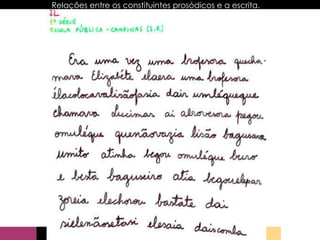 Relações entre os constituintes prosódicos e a escrita.
1ª SÉRIE
ESCOLA PÚBLICA - CAMPINAS (S.P.)
Era uma vez uma brofesora quecha-
mava Elizabéte elaera uma brofesora
élacolocavalisãofasia dair umléquegue
chamava Lucimar ai abroveseres pegou
omuléque quenãovazia lisão bagusava
umito atinha begou omuléque buro
e besta baguseiro atia begouelepar
zoreia elechorou bastate dai
sielenãosetasi elesaia daiscomba